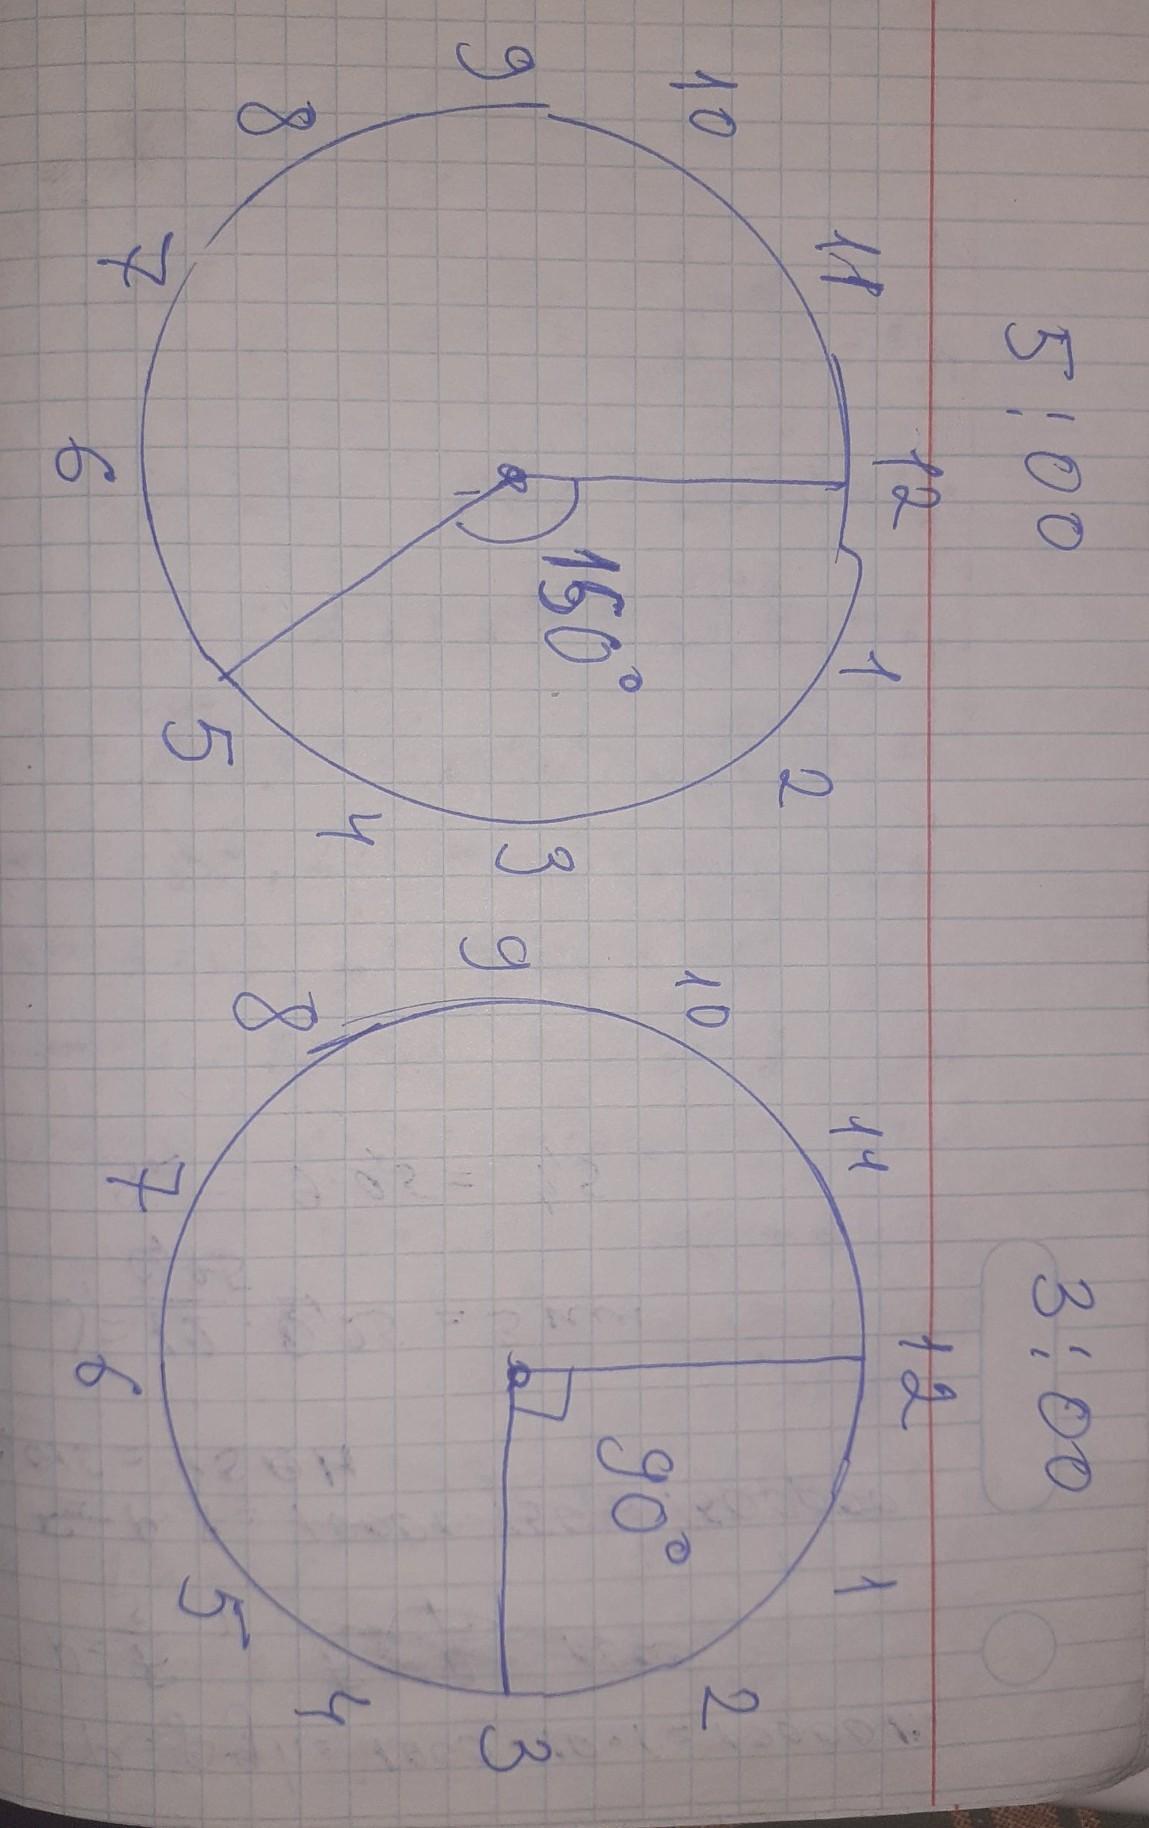 5:00
12
11 1
10 2
150°
9 3
8 4
7 5
6
3:00
12
11 1
10 2
90°
9 3
8 4
7 5
6